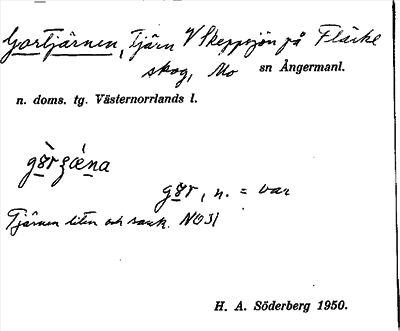 Gortjärnen, Tjärn V Skeppsjön på Fläcke
skog, Mo sn Ångermanl.
n. doms. tg. Västernorrlands l.
gòrʒǽna
gor, n. = var
Tjärnen liten och sank. NO31
H. A. Söderberg 1950.